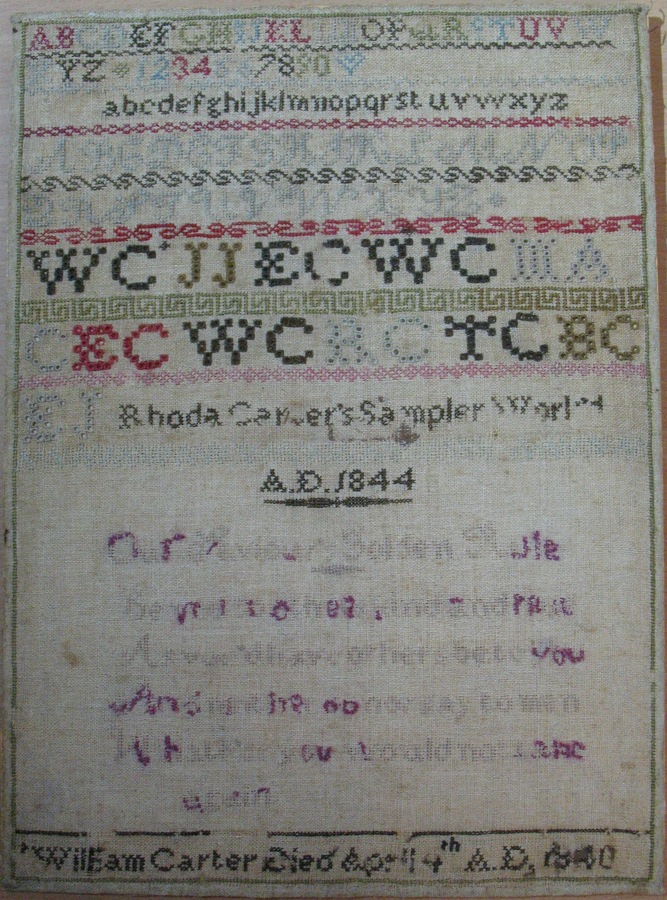 ABCDEFGHIJKLMNOPQRSTUVW
YZ 1234567890
abcdefghijklmnopqrstuvwxyz
WC JJ EC WC MA
C EC WC RC TC BC
EJ Rhoda Carter's Sampler
A.D. 1844
Our Saviours Golden Rule
Be you to others kind and true
As you'd have others be to you
And neither do nor say to men
What'er you would not take
again
William Carter Died April 4th A.D,